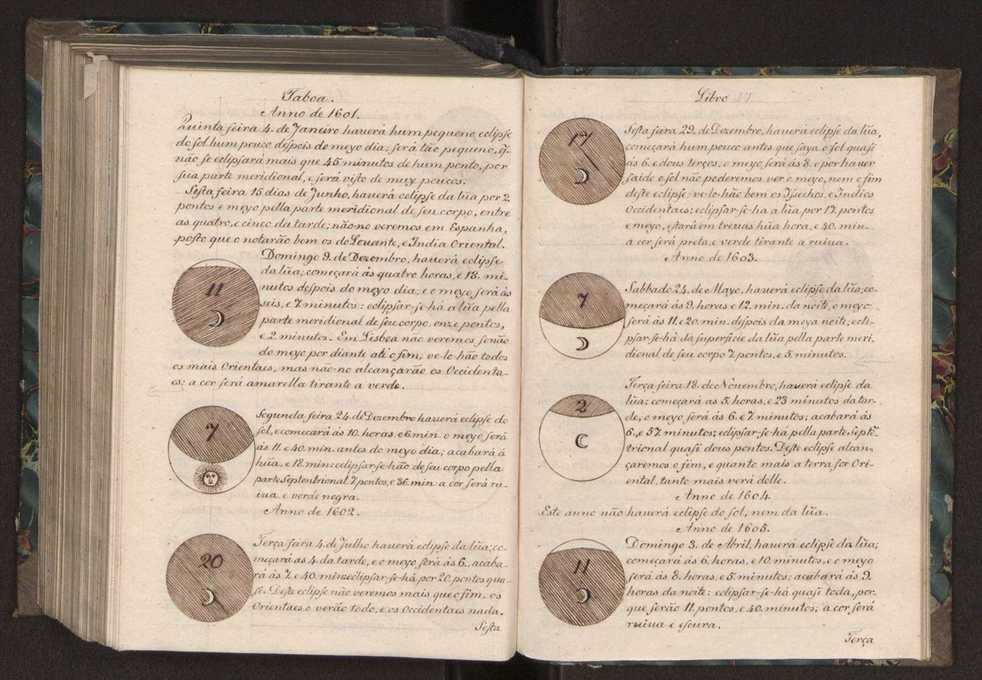 Taboa.
Anno de 1601.
Quinta feira 4. de Janeiro hauerá hum pequeno, eclipse
do sol hum pouco despois de meyo dia; será tão pequeno, q̃
não se eclipsará mais que 45 minutos de hum ponto, por
sua parte meridional, e será visto de muy poucos.
Sesta feira 15 dias de Junho, hauerá eclipse da lũa por 2
pontos e meyo pella parte meridional de seu corpo, entre
as quatro, e cinco da tarde; não no veremos em Espanha,
posto que o notarão bem os do Leuante, e India Oriental.
Domingo 9. de Dezembro, hauerá eclipse
da lũa; começará ás quatro horas, e 18. mi-
nutos despois do meyo dia; e o meyo será ás
seis, e 7 minutos: eclipsar-se-há a lũa pella
parte meridional de seu corpo, onze pontos,
e 2 minutos. Em Lisboa não veremos senão
do meyo por diante até o fim, ve-lo-hão todo
os mais Orientaes, mas não-no alcançarão os Occidenta-
es: a cor será amarella tirante a verde.
11
Segunda feira 24 de Dezembro hauerá eclipse do
sol, e começará ás 10. horas. e 6 min. o meyo será
ás 11. e 40. min. antes do meyo dia; acabará á
hũa, e 18. min: eclipsar-se-hão de seu corpo pella
parte Septentrional 7 pontos, e 36. min. a cor será ru-
iua e verde negra.
7
Anno de 1602.
Terça feira 4. de Julho hauerá eclipse da lũa; co-
meçará as 4. da tarde, e o meyo será ás 6., acaba-
rá ás 7. e 40. min: eclipsar-se-há, por 20. pontos qua-
si. Deste eclipse não veremos mais que o fim, os
Orientaes o verão todo, e os Occidentaes nada.
20
Sesta
Libro
Sesta feira 29. de Dezembro, hauerá eclipse da lũa,
começará hum pouco antes que saya o sol quasi
ás 6. e dous terços, o meyo será ás 8. e por hauer
saido o sol não poderemos ver o meyo, nem o fim
deste eclipse, ve-lo-hão bem os e Indios
Occidentaes; eclipsar-se-ha a lũa por 17. pontos
e meyo, estará em treuas hũa hora, e 40. min.
a cor será preta, e verde tirante a ruiua.
17
Anno de 1603.
Sabbado 24. de Mayo, hauerá eclipse da lũa; co-
meçará ás 9. horas e 12. min. da noite, o meyo
será ás 11. e 20. min. dispois da meya noite; ecli-
psar-se-há da superficie da lũa pella parte meri-
dional de seu corpo 7. pontos, e 5. minutos.
7
Terça feira 18. de Nouembro, hauerá eclipse da
lũa; começará as 5. horas, e 23 minutos da tar-
de, o meyo será ás 6. e 7 minutos; acabará ás
6, e 57 minutos; eclipsar-se-há pella parte Septẽ-
trional quasi deus pontos. Deste eclipse alcan-
çaremos o fim, e quanto mais a terra for Ori-
ental, tanto mais verá delle.
2
Anno de 1604.
Este anno não hauerá eclipse do sol, nem da lũa.
Anno de 1605.
Domingo 3. de Abril, hauerá eclipse da lũa;
começará ás 6. horas, e 10. minutos, e o meyo
será ás 8. horas, e 5. minutos: acabará ás 9.
horas da noite: eclipsar-se-há quasi toda, por
que serão 11. pontos, e 40. minutos; a cor será
ruiua e escura.
11
Terça